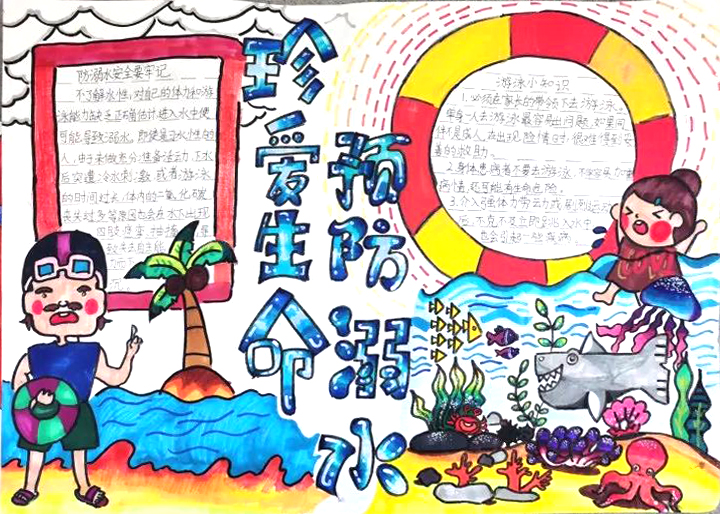 珍爱生命
预防溺水
防溺水安全要牢记
不了解水性,对自己的体力和游
泳能力缺乏正确估计,进入水中便
可能导致溺水。即使是习水性的
人,由于未做充分准备活动,下水
后突遭冷水刺激,或者游泳
的时间过长,体内的二氧化碳
丧失过多等原因也会在水下出现
四肢
游泳小知识
1.必须在家长的带领下去游泳。
单身一人去游泳最容易出问题,如果同
伴不是成人,在出现险情时,很难得到妥
善的救助。
2.身体患病者不要去游泳。
病情,还可能有生命危险。
3.介入强体力劳动或剧烈运动
后,不
也会引起一些疾病。